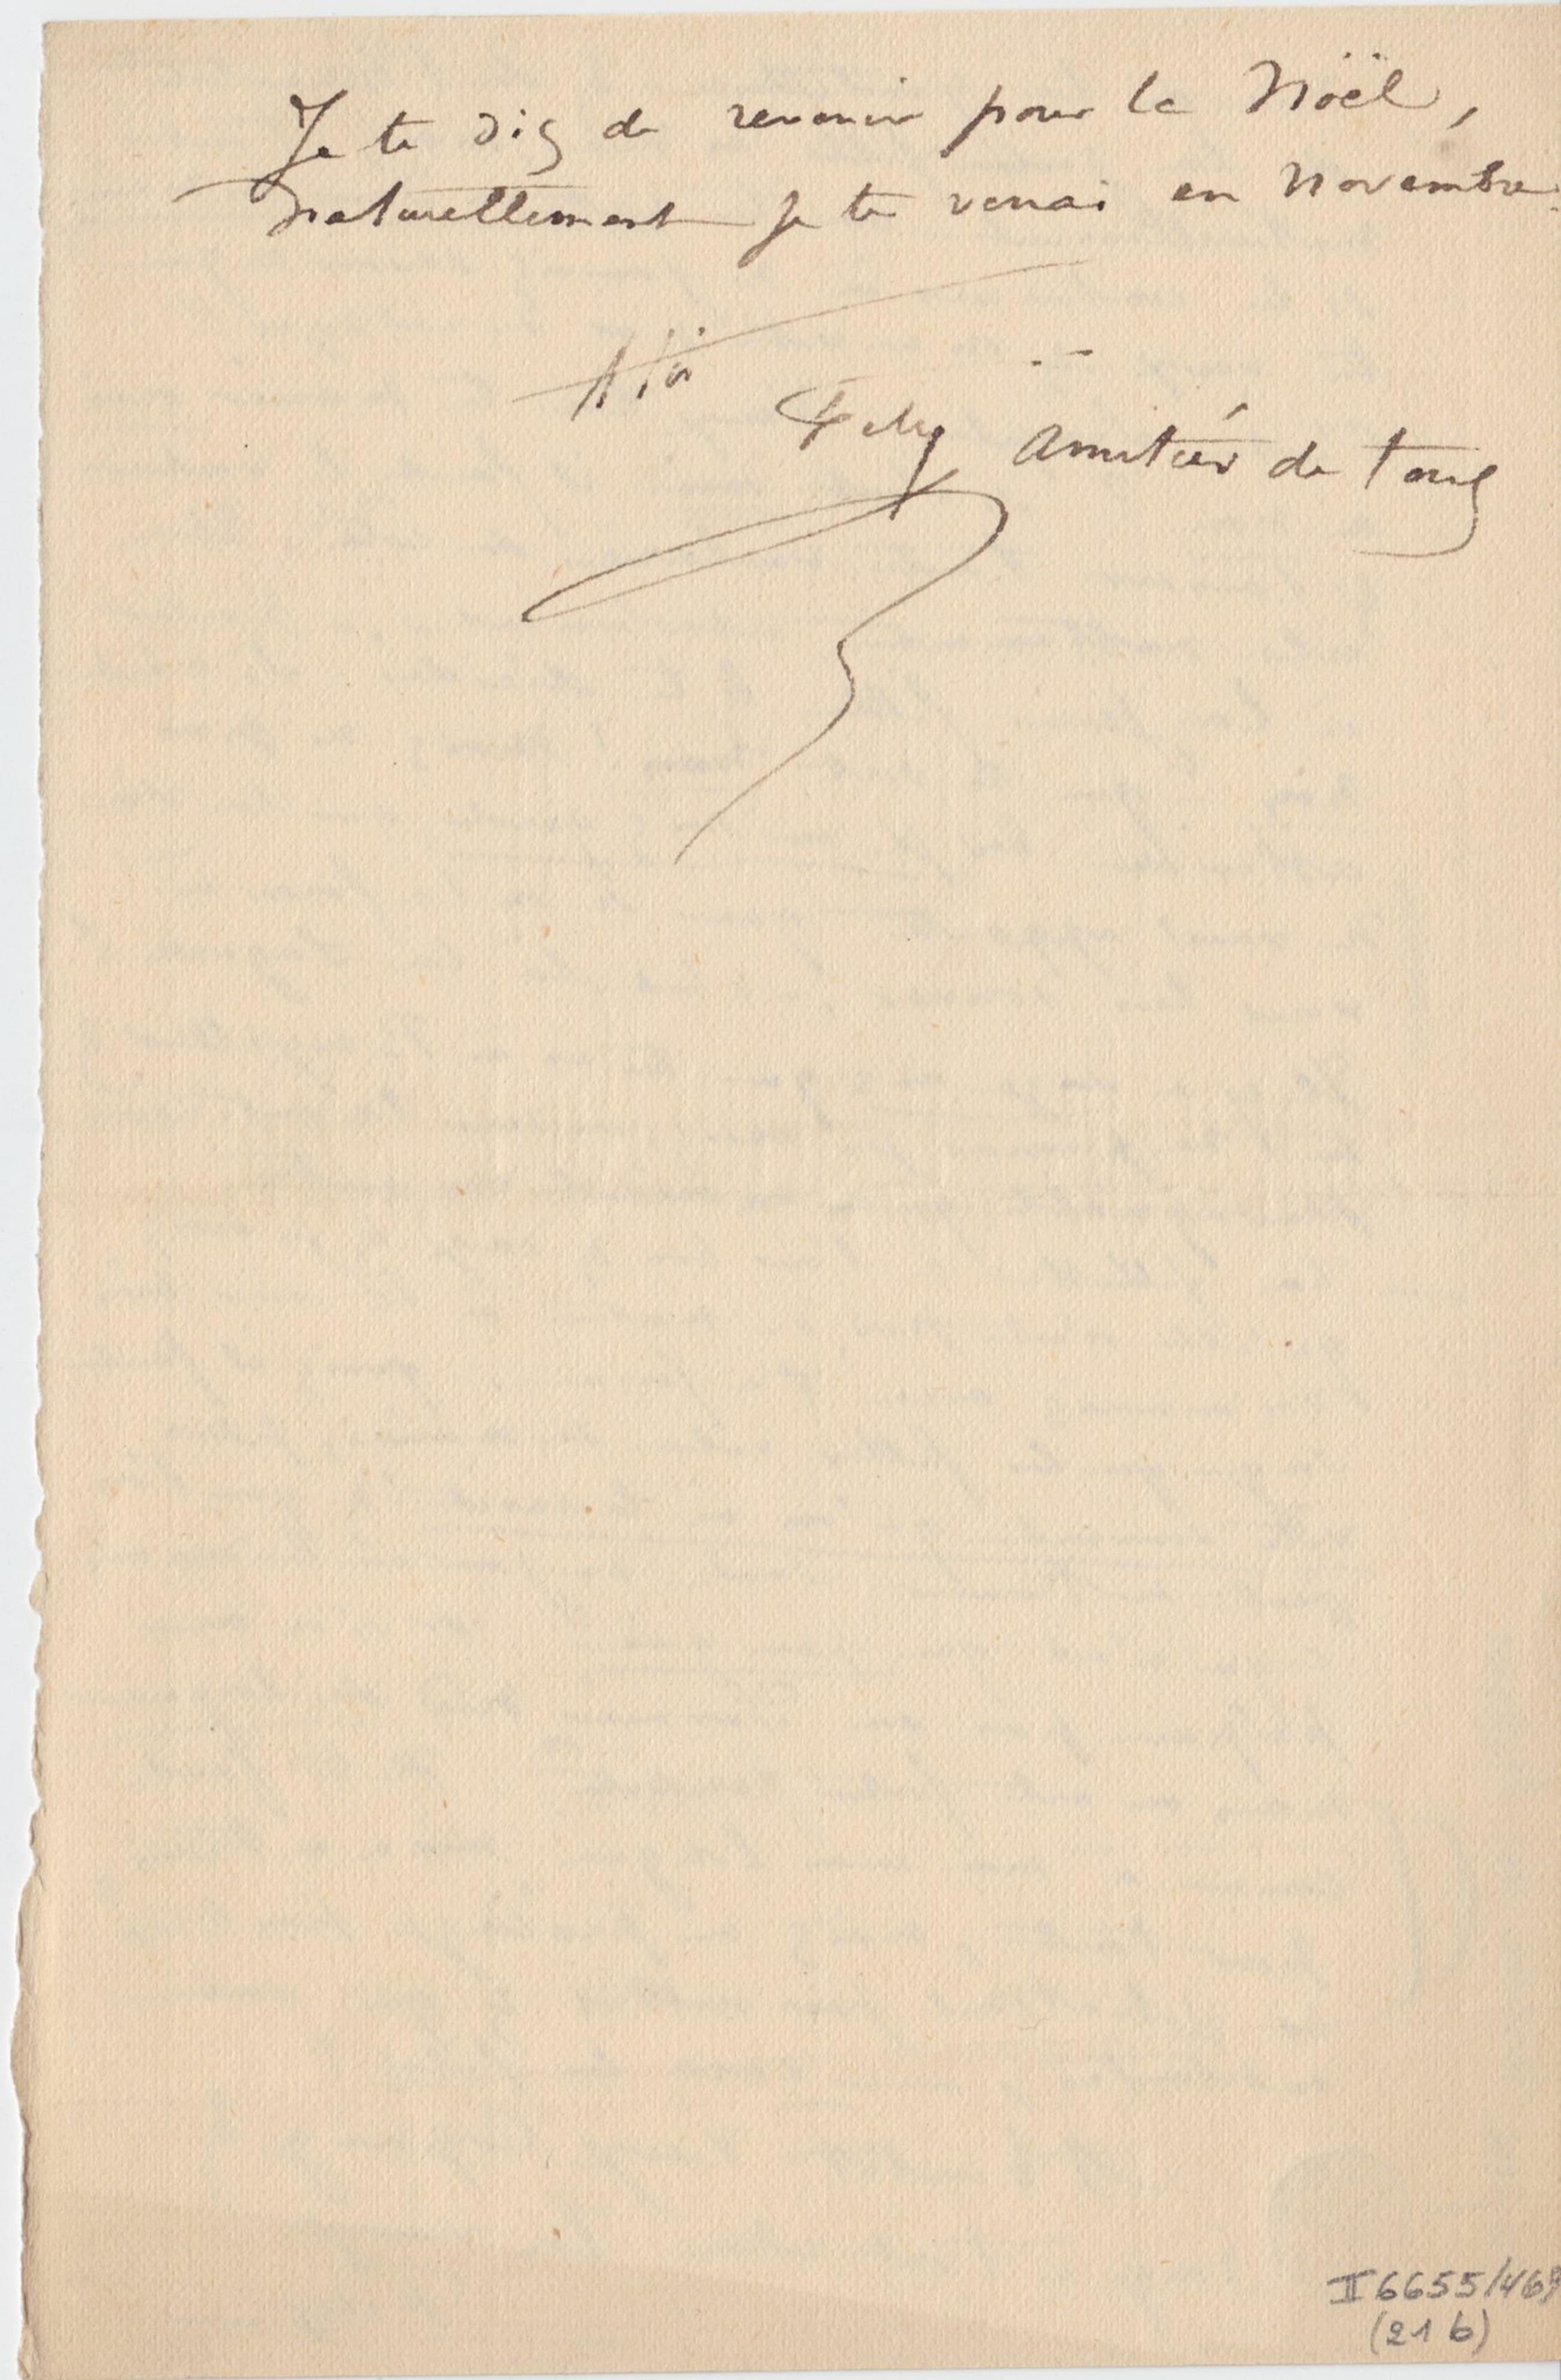 Je te dis de revenir pour la Noël,
naturellement je te verrai en Novembre.
à toi
Fély Amitiés de tous
II 6655/469
(21 b)